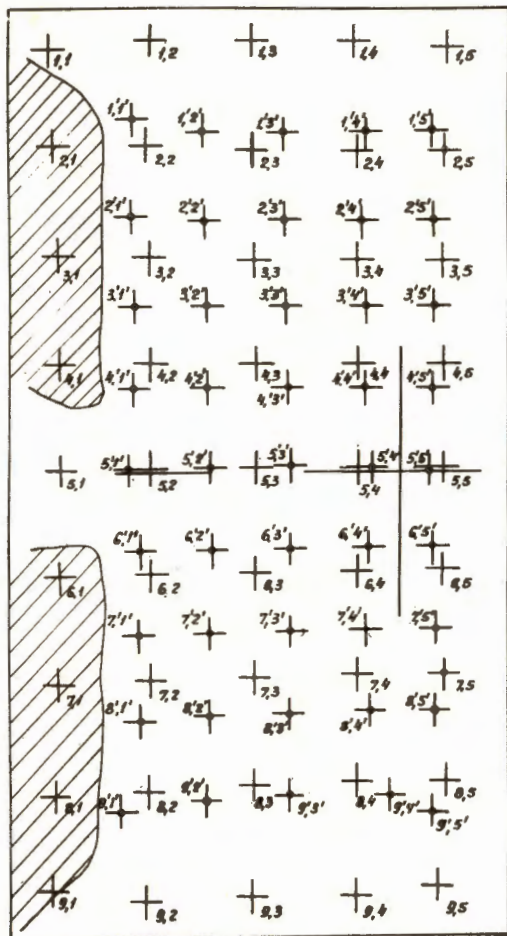 1,1 1,2 1,3 1,4 1,5
1,'1' 1,'2' 1,'3' 1,'4' 1,'5'
2,1 2,2 2,3 2,4 2,5
2,'1' 2,'2' 2,'3' 2,'4 2,'5'
3,1 3,2 3,3 3,4 3,5
3,'1' 3,'2' 3,'3' 3,'4' 3,'5'
4,1 4,2 4,3 4,4 4,5
4,'1' 4,'2' 4,'3' 4,'4' 4,'5'
5,'1' 5,'2' 5,'3' 5,'4 5,'5'
5,1 5,2 5,3 5,4 5,5
6,'1' 6,'2' 6,'3' 6,'4' 6,'5'
6,1 6,2 6,3 6,4 6,5
7,'1' 7,'2' 7,'3' 7,'4' 7,'5'
7,1 7,2 7,3 7,4 7,5
8,'1' 8,'2' 8,'3' 8,'4' 8,'5'
8,1 8,2 8,3 8,4 8,5
9,'2' 9,'3' 9,'4' 9,'5'
9,1 9,2 9,3 9,4 9,5